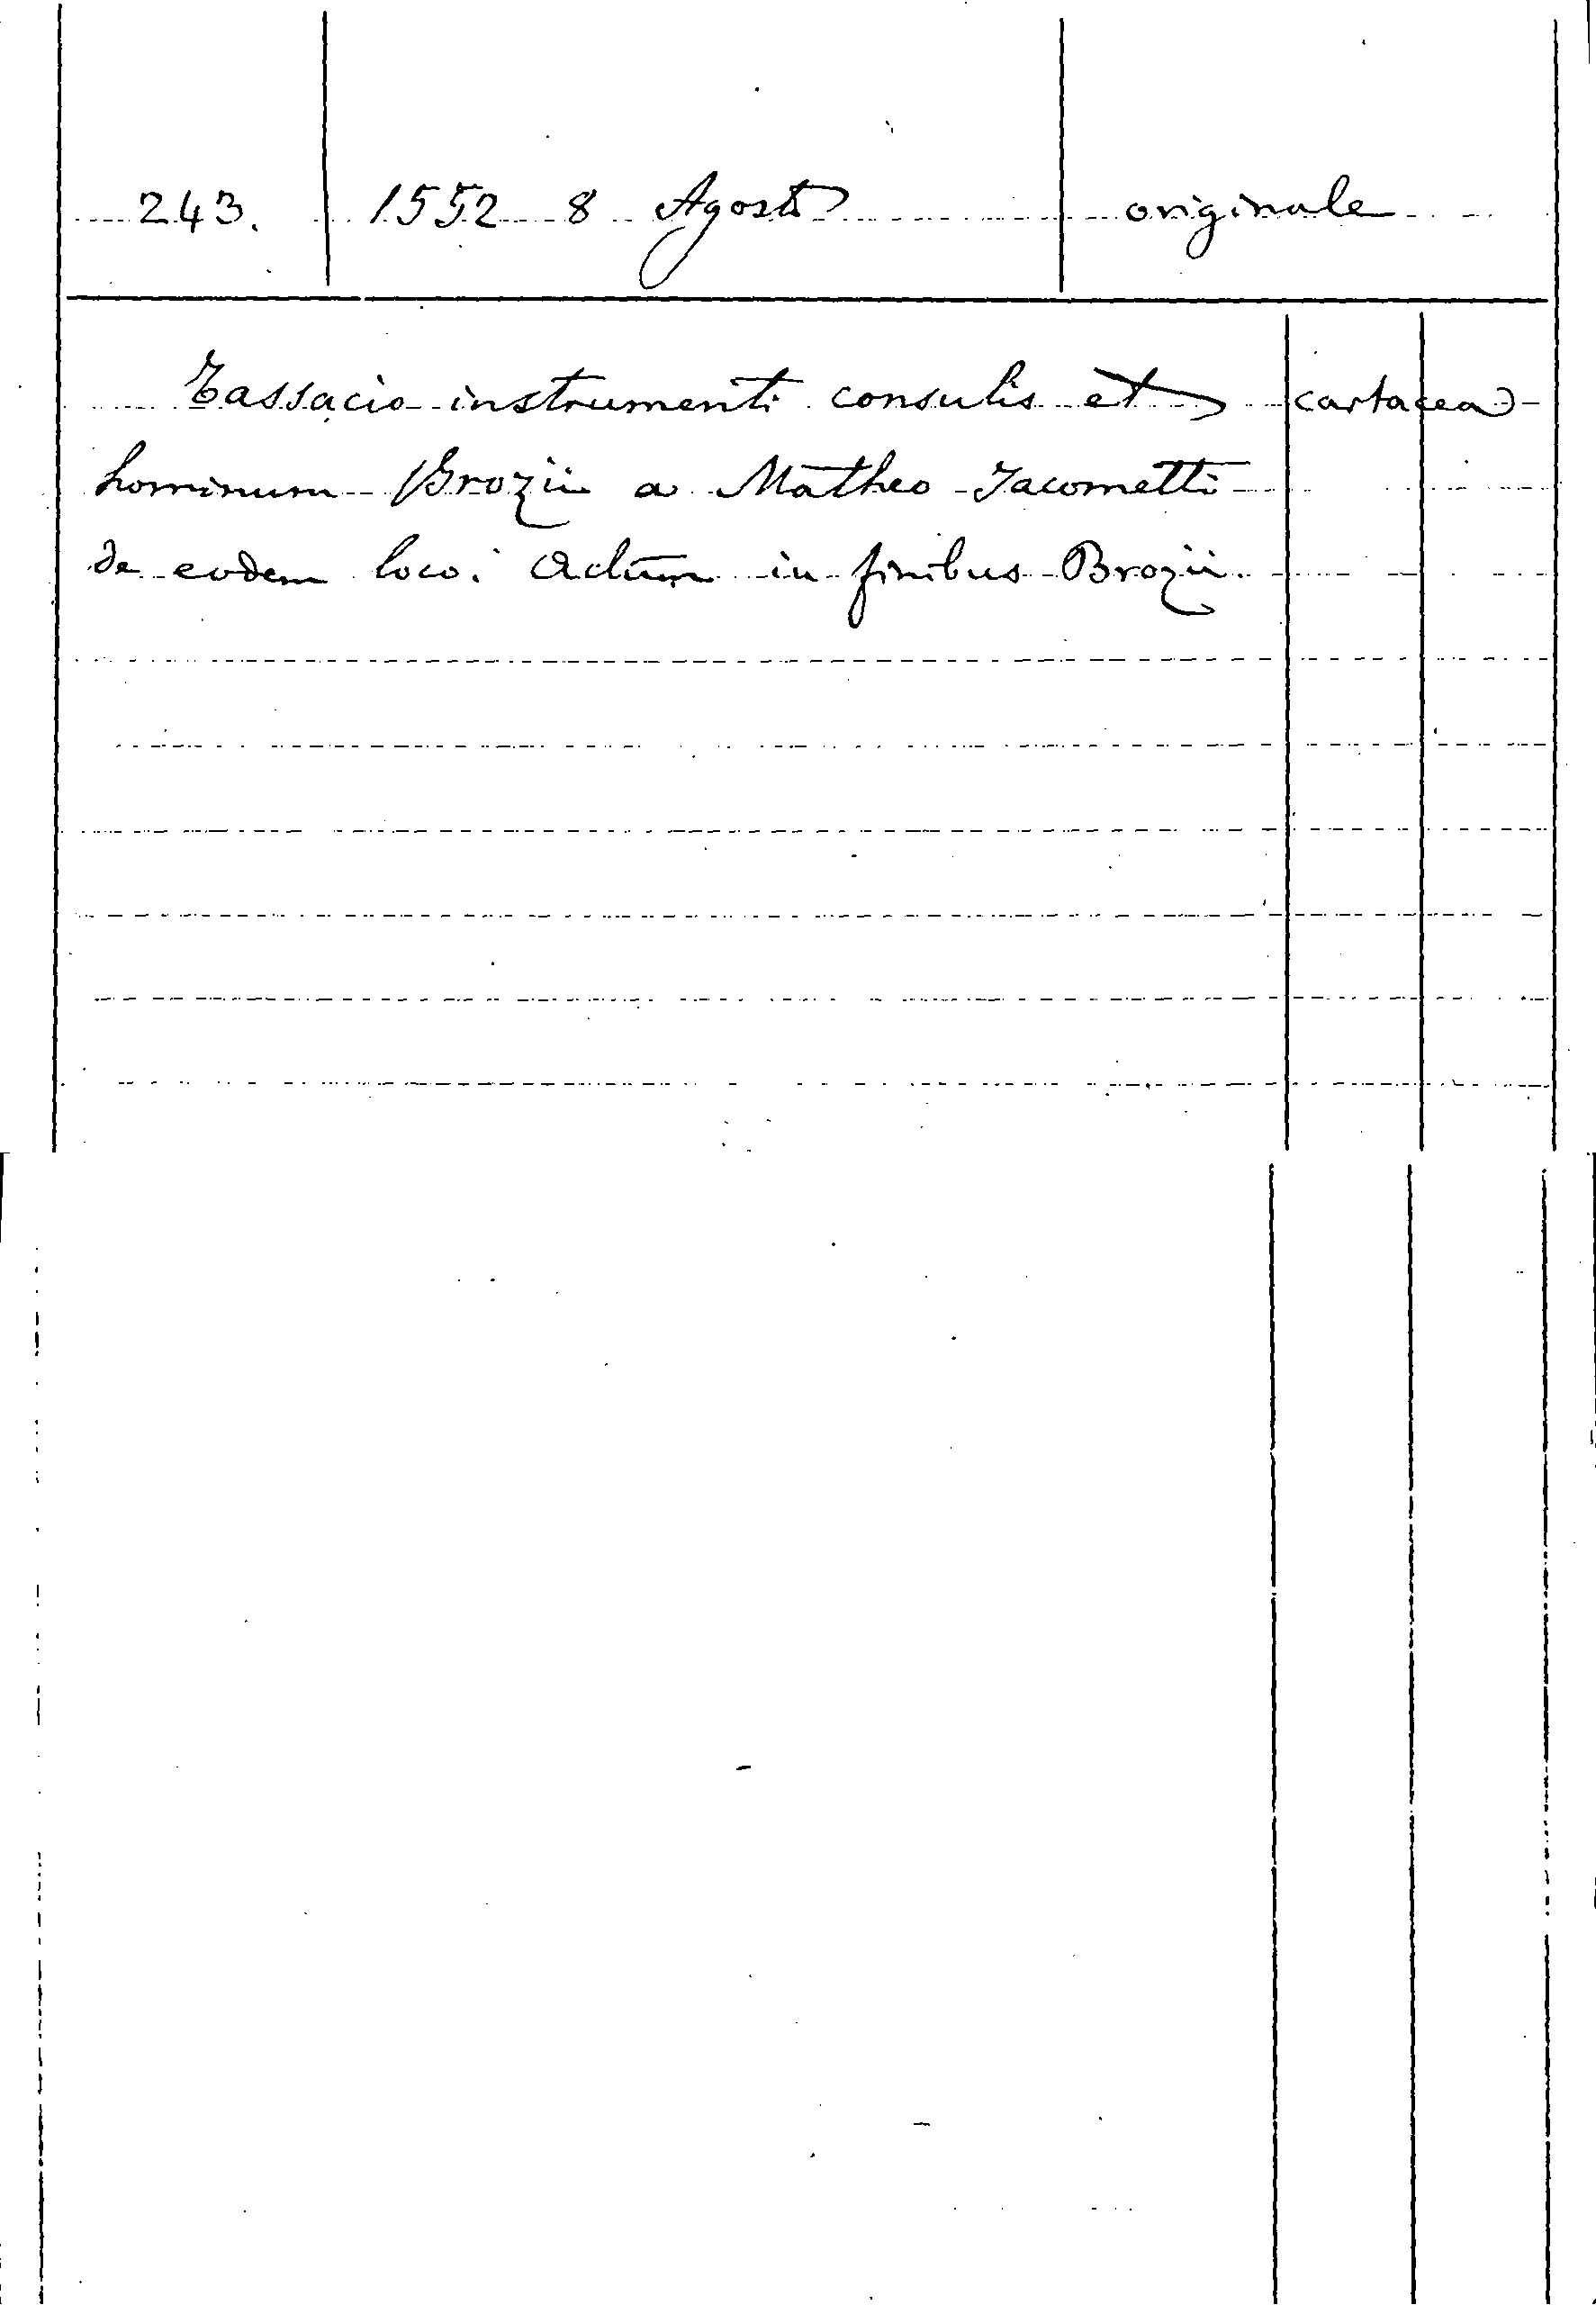 243. 1552 8 Agosto originale
Tassacio instrumenti consulis et cartacea
hominum Brozii a Matheo Jacometti
de eodem loco. Actum in finibus Brozii.